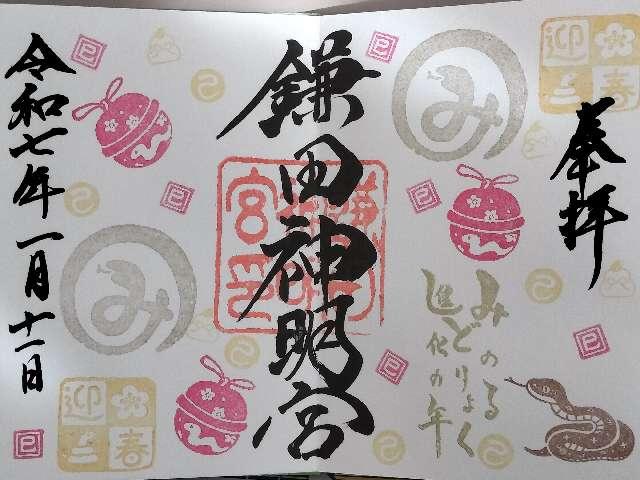 奉拝
迎春
み
巳
みのる
どりょく
進化の年
鎌田神明宮
令和七年一月十一日
み
巳
迎春